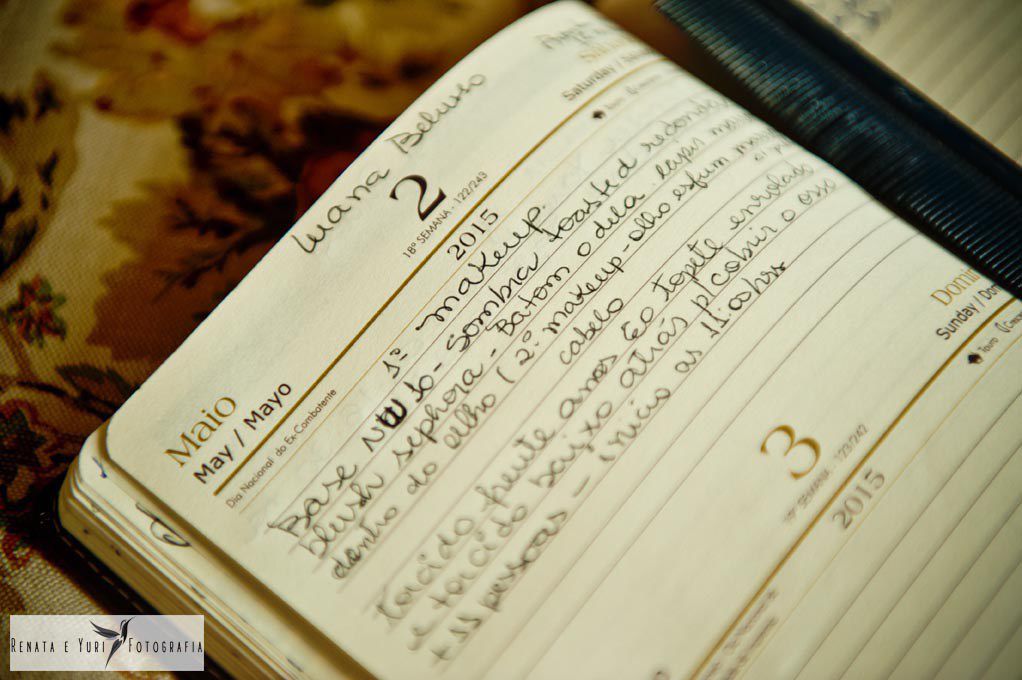 Luana Beluso
Maio
May / Mayo
2
18ª SEMANA - 122/243
2015
Saturday /
Dia Nacional do Ex-Combatente
1º makeup.
Base Nº - Sombra toasted
blush sephora - Batom o dela.
dentro do olho (2º makeup - olho esfum
cabelo
torcido frente anos 60 topete enrolado
e torcido baixo atrás p/cobrir o osso
+ pessoas - início as 11:00hrs
Domin
Sunday / Dom
Touro
3
18ª SEMANA - 123/242
2015
RENATA E YURI FOTOGRAFIA